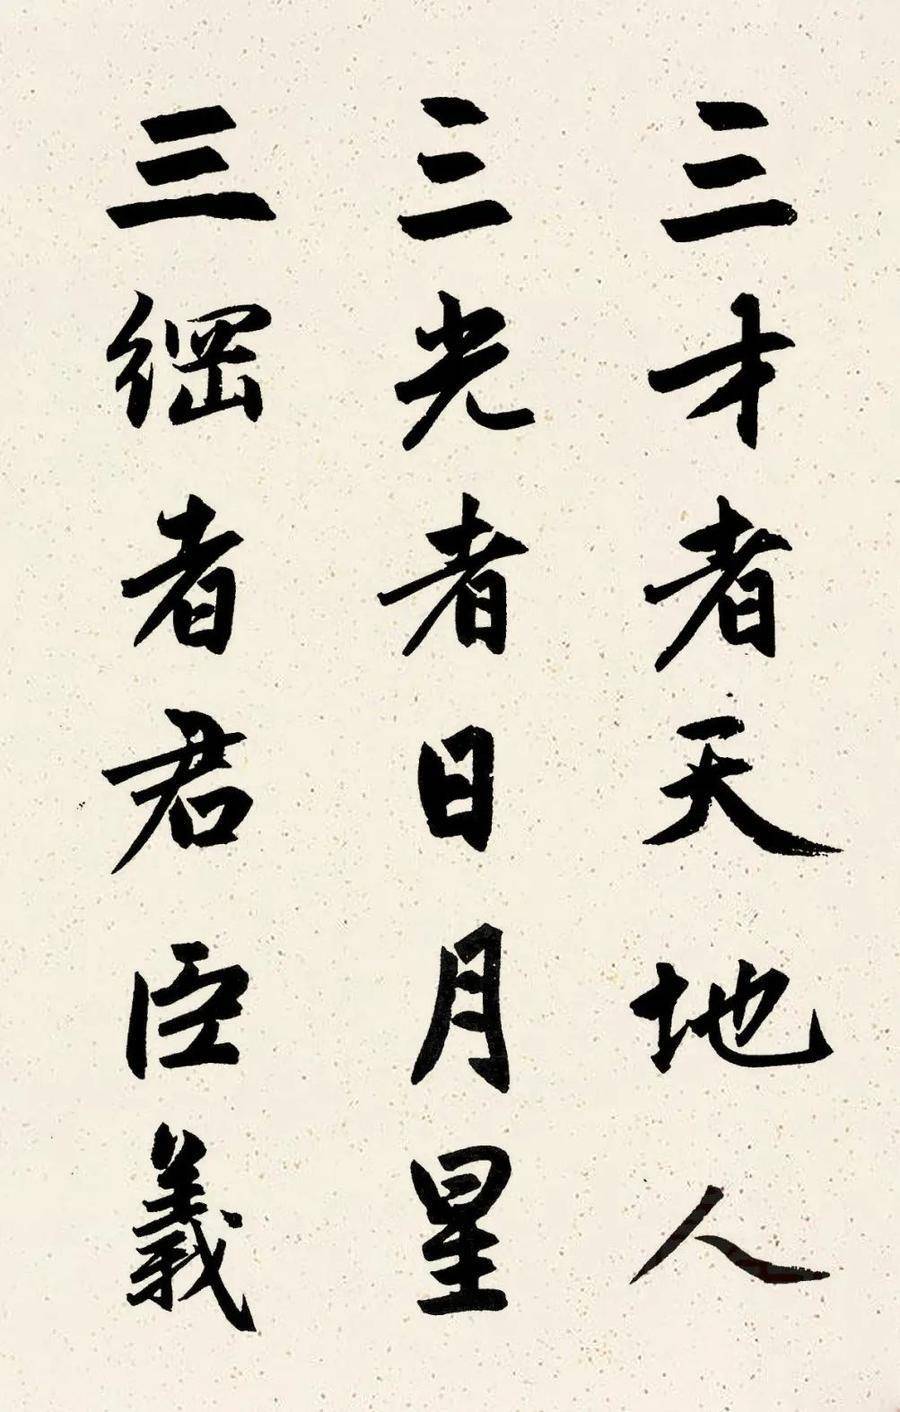 三才者天地人
三光者日月星
三綱者君臣義